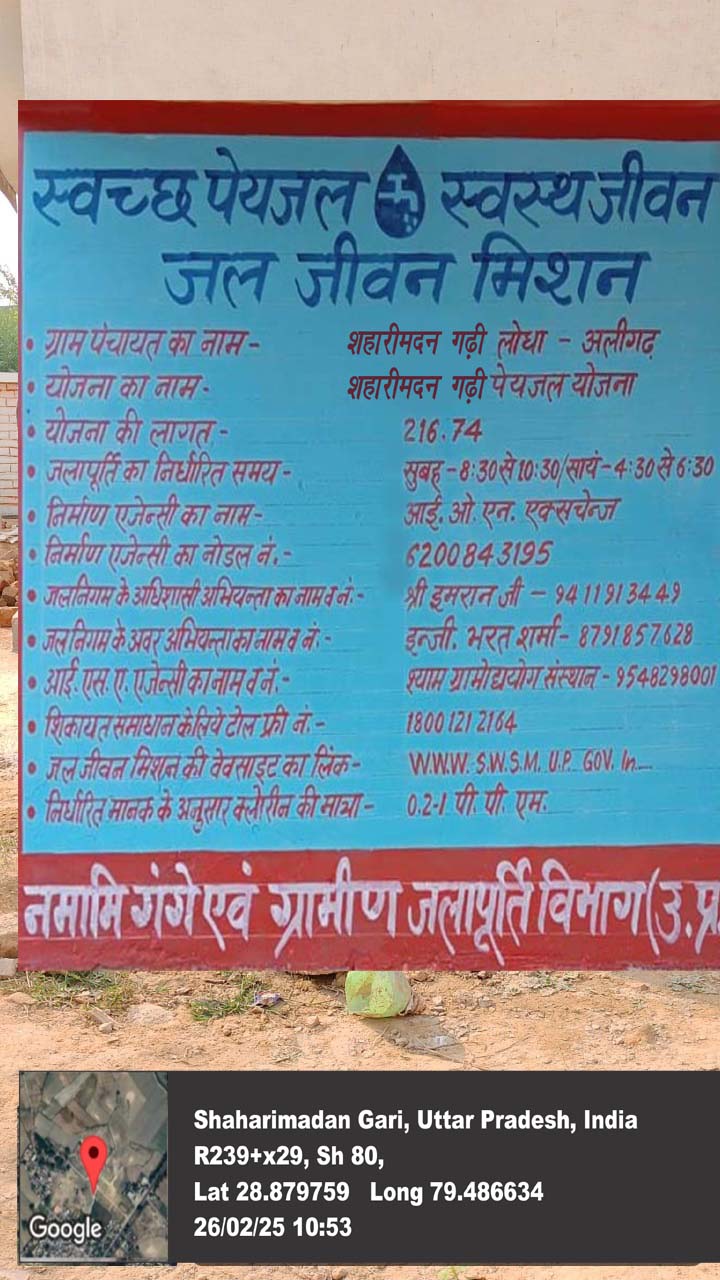 स्वच्छ पेयजल स्वस्थ जीवन
जल जीवन मिशन
• ग्राम पंचायत का नाम - शहारीमदन गढ़ी लोधा - अलीगढ़
• योजना का नाम - शहारीमदन गढ़ी पेयजल योजना
• योजना की लागत - 216.74
• जलापूर्ति का निर्धारित समय - सुबह - 8:30 से 10:30/सायं - 4:30 से 6:30
• निर्माण एजेन्सी का नाम - आई. ओ. एन. एक्सचेन्ज
• निर्माण एजेन्सी का नोडल नं. - 6200843195
• जलनिगम के अधिशासी अभियन्ता का नाम व नं. - श्री इमरान जी - 9411913449
• जलनिगम के अवर अभियन्ता का नाम व नं. - इन्जी. भरत शर्मा - 8791857628
• आई. एस. ए. एजेन्सी का नाम व नं. - श्याम ग्रामोद्ययोग संस्थान - 9548298001
• शिकायत समाधान के लिये टोल फ्री नं. - 1800 121 2164
• जल जीवन मिशन की वेवसाइट का लिंक - W.W.W. S.W.S.M. U.P. GOV. In....
• निर्धारित मानक के अनुसार क्लोरीन की मात्रा - 0.2-1 पी. पी. एम.
नमामि गंगे एवं ग्रामीण जलापूर्ति विभाग (उ.प्र.
Shaharimadan Gari, Uttar Pradesh, India
R239+x29, Sh 80,
Lat 28.879759 Long 79.486634
26/02/25 10:53
Google